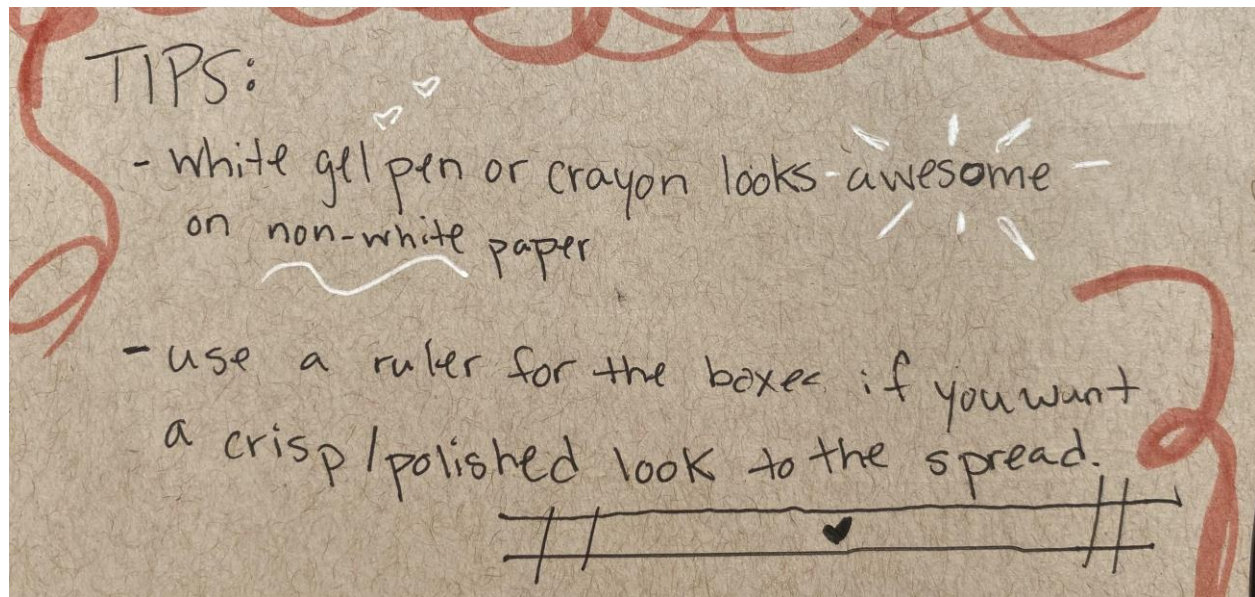 TIPS:
- white gel pen or crayon looks awesome
on non-white paper
- use a ruler for the boxes if you want
a crisp/polished look to the spread.